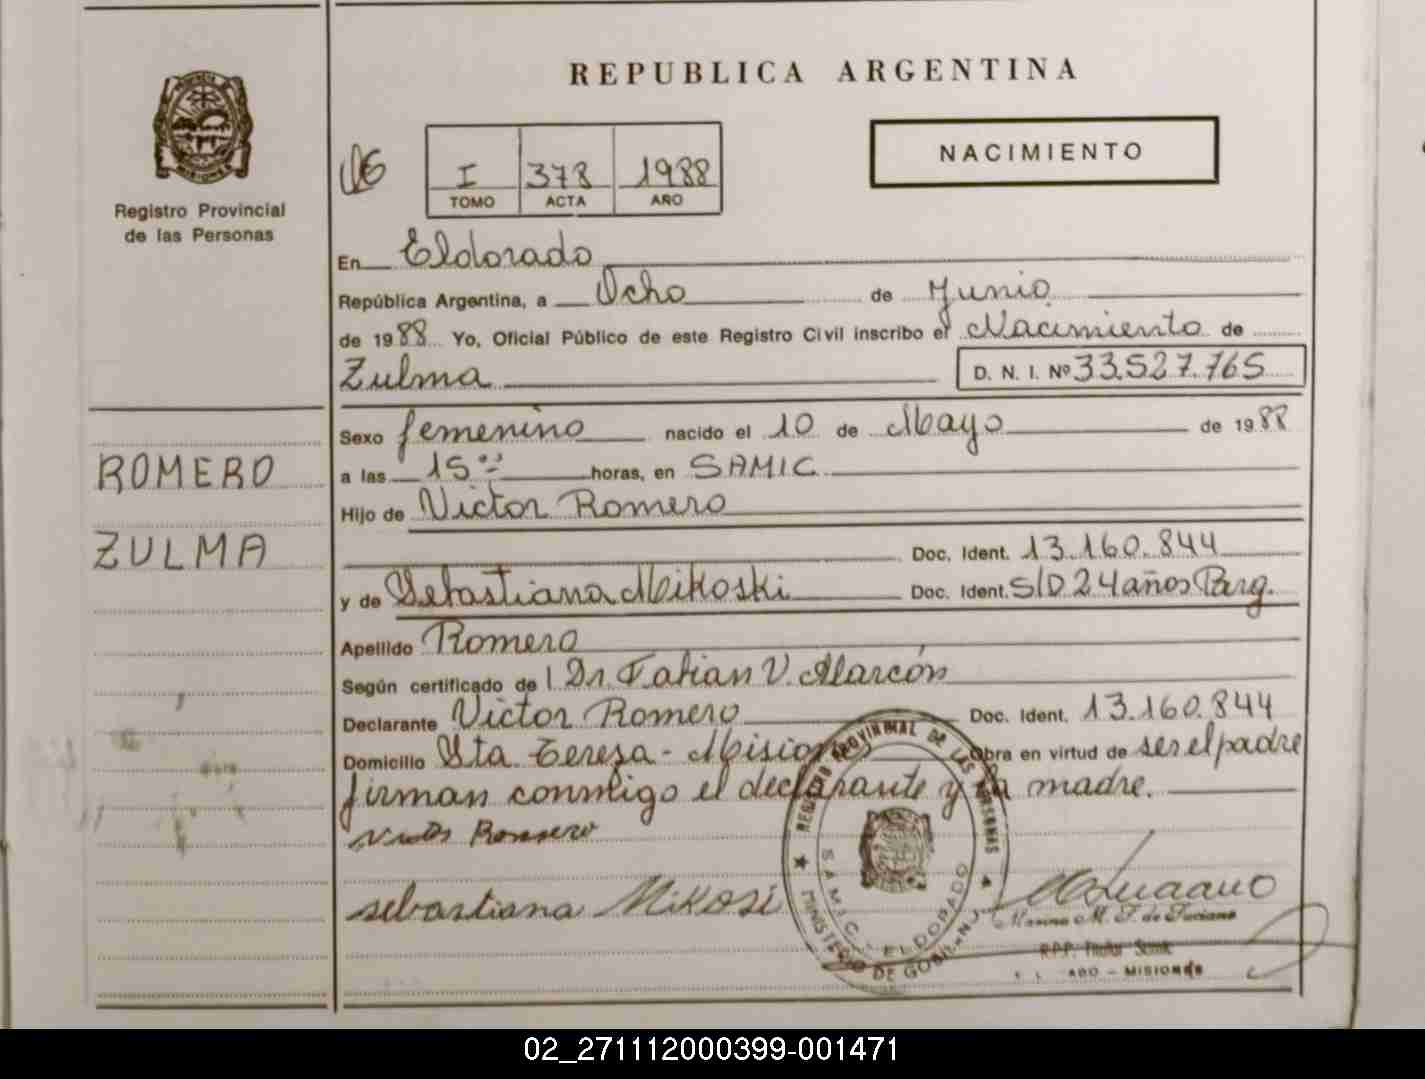 REPUBLICA ARGENTINA
NACIMIENTO
I 378 1988
TOMO ACTA AÑO
Registro Provincial
de las Personas
En Eldorado
República Argentina, a Ocho de Junio
de 1988 Yo, Oficial Público de este Registro Civil inscribo el Nacimiento de
Zulma D. N. I. Nº 33.527.765
ROMERO
ZULMA
Sexo femenino nacido el 10 de Mayo de 1988
a las 15 horas, en SAMIC
Hijo de Victor Romero
Doc. Ident. 13.160.844
y de Sebastiana Mikoski Doc. Ident. S/D 24 años Parg.
Apellido Romero
Según certificado de Dr. Fabian V. Alarcón
Declarante Victor Romero Doc. Ident. 13.160.844
Domicilio Sta Teresa - Misiones Obra en virtud de ser el padre
firman conmigo el declarante y la madre.
Victor Romero
sebastiana Mikosi
REGISTRO PROVINCIAL DE LAS PERSONAS
S.A.M.I.C. ELDORADO
MINISTERIO DE GOBIERNO
Marina M. F. de Luciano
R.P.P. Titular
MISIONES
02_271112000399-001471